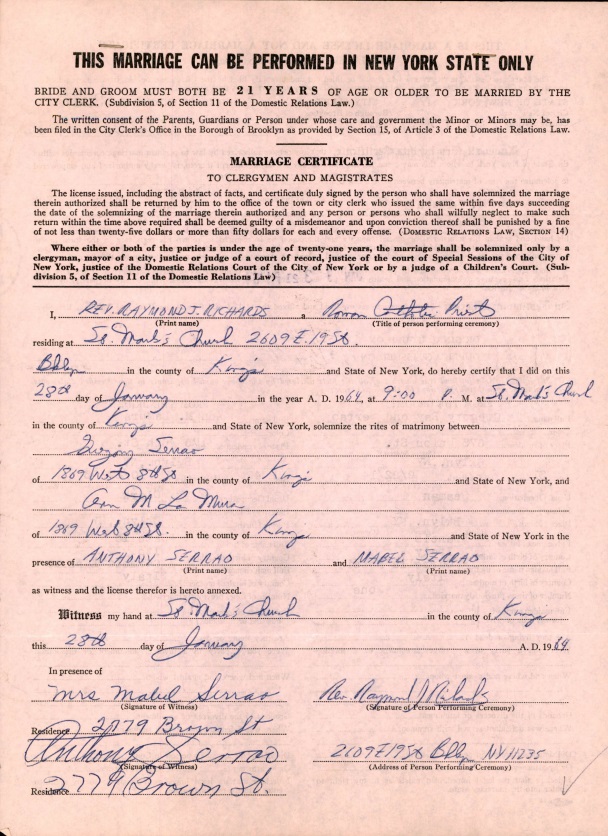 THIS MARRIAGE CAN BE PERFORMED IN NEW YORK STATE ONLY
BRIDE AND GROOM MUST BOTH BE 21 YEARS OF AGE OR OLDER TO BE MARRIED BY THE
CITY CLERK. (Subdivision 5, of Section 11 of the Domestic Relations Law.)
The written consent of the Parents, Guardians or Person under whose care and government the Minor or Minors may be, has
been filed in the City Clerk's Office in the Borough of Brooklyn as provided by Section 15, of Article 3 of the Domestic Relations Law.
MARRIAGE CERTIFICATE
TO CLERGYMEN AND MAGISTRATES
The license issued, including the abstract of facts, and certificate duly signed by the person who shall have solemnized the marriage
therein authorized shall be returned by him to the office of the town or city clerk who issued the same within five days succeeding
the date of the solemnizing of the marriage therein authorized and any person or persons who shall wilfully neglect to make such
return within the time above required shall be deemed guilty of a misdemeanor and upon conviction thereof shall be punished by a fine
of not less than twenty-five dollars or more than fifty dollars for each and every offense. (DOMESTIC RELATIONS LAW, SECTION 14)
Where either or both of the parties is under the age of twenty-one years, the marriage shall be solemnized only by a
clergyman, mayor of a city, justice or judge of a court of record, justice of the court of Special Sessions of the City of
New York, justice of the Domestic Relations Court of the City of New York or by a judge of a Children's Court. (Sub-
division 5, of Section 11 of the Domestic Relations Law)
I, REV. RAYMOND J. RICHARDS a Roman Catholic Priest
(Print name) (Title of person performing ceremony)
residing at St. Mark's Church 2609 E. 19 St.
Bklyn in the county of Kings and State of New York, do hereby certify that I did on this
28th day of January in the year A. D. 1964, at 9:00 P. M. at St. Mark's Church
in the county of Kings and State of New York, solemnize the rites of matrimony between
Gregory Serrao
of 1869 West 8th St in the county of Kings and State of New York, and
Ann M La Mura
of 1869 West 8th St. in the county of Kings and State of New York in the
presence of ANTHONY SERRAO and MABEL SERRAO
(Print name) (Print name)
as witness and the license therefor is hereto annexed.
Witness my hand at St. Mark's Church in the county of Kings
this 28th day of January A. D. 1964.
In presence of
Mrs Mabel Serrao Rev. Raymond J Richards
(Signature of Witness) (Signature of Person Performing Ceremony)
Residence 2779 Brown St
Anthony Serrao 2609 E 19 St Bklyn NY 11235
(Signature of Witness) (Address of Person Performing Ceremony)
Residence 2779 Brown St.